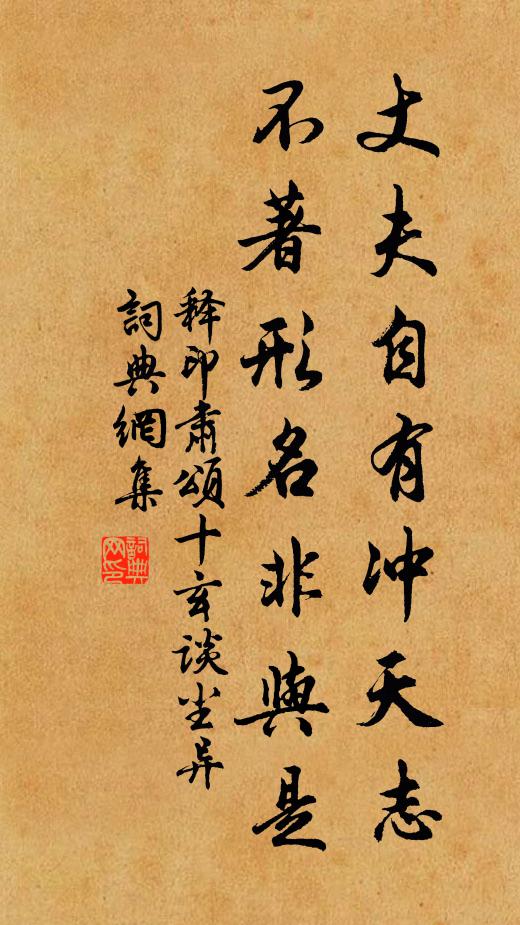 丈夫自有冲天志
不著形名非與是
释印肃頌十玄谈尘异
詞典網集
詞典網印